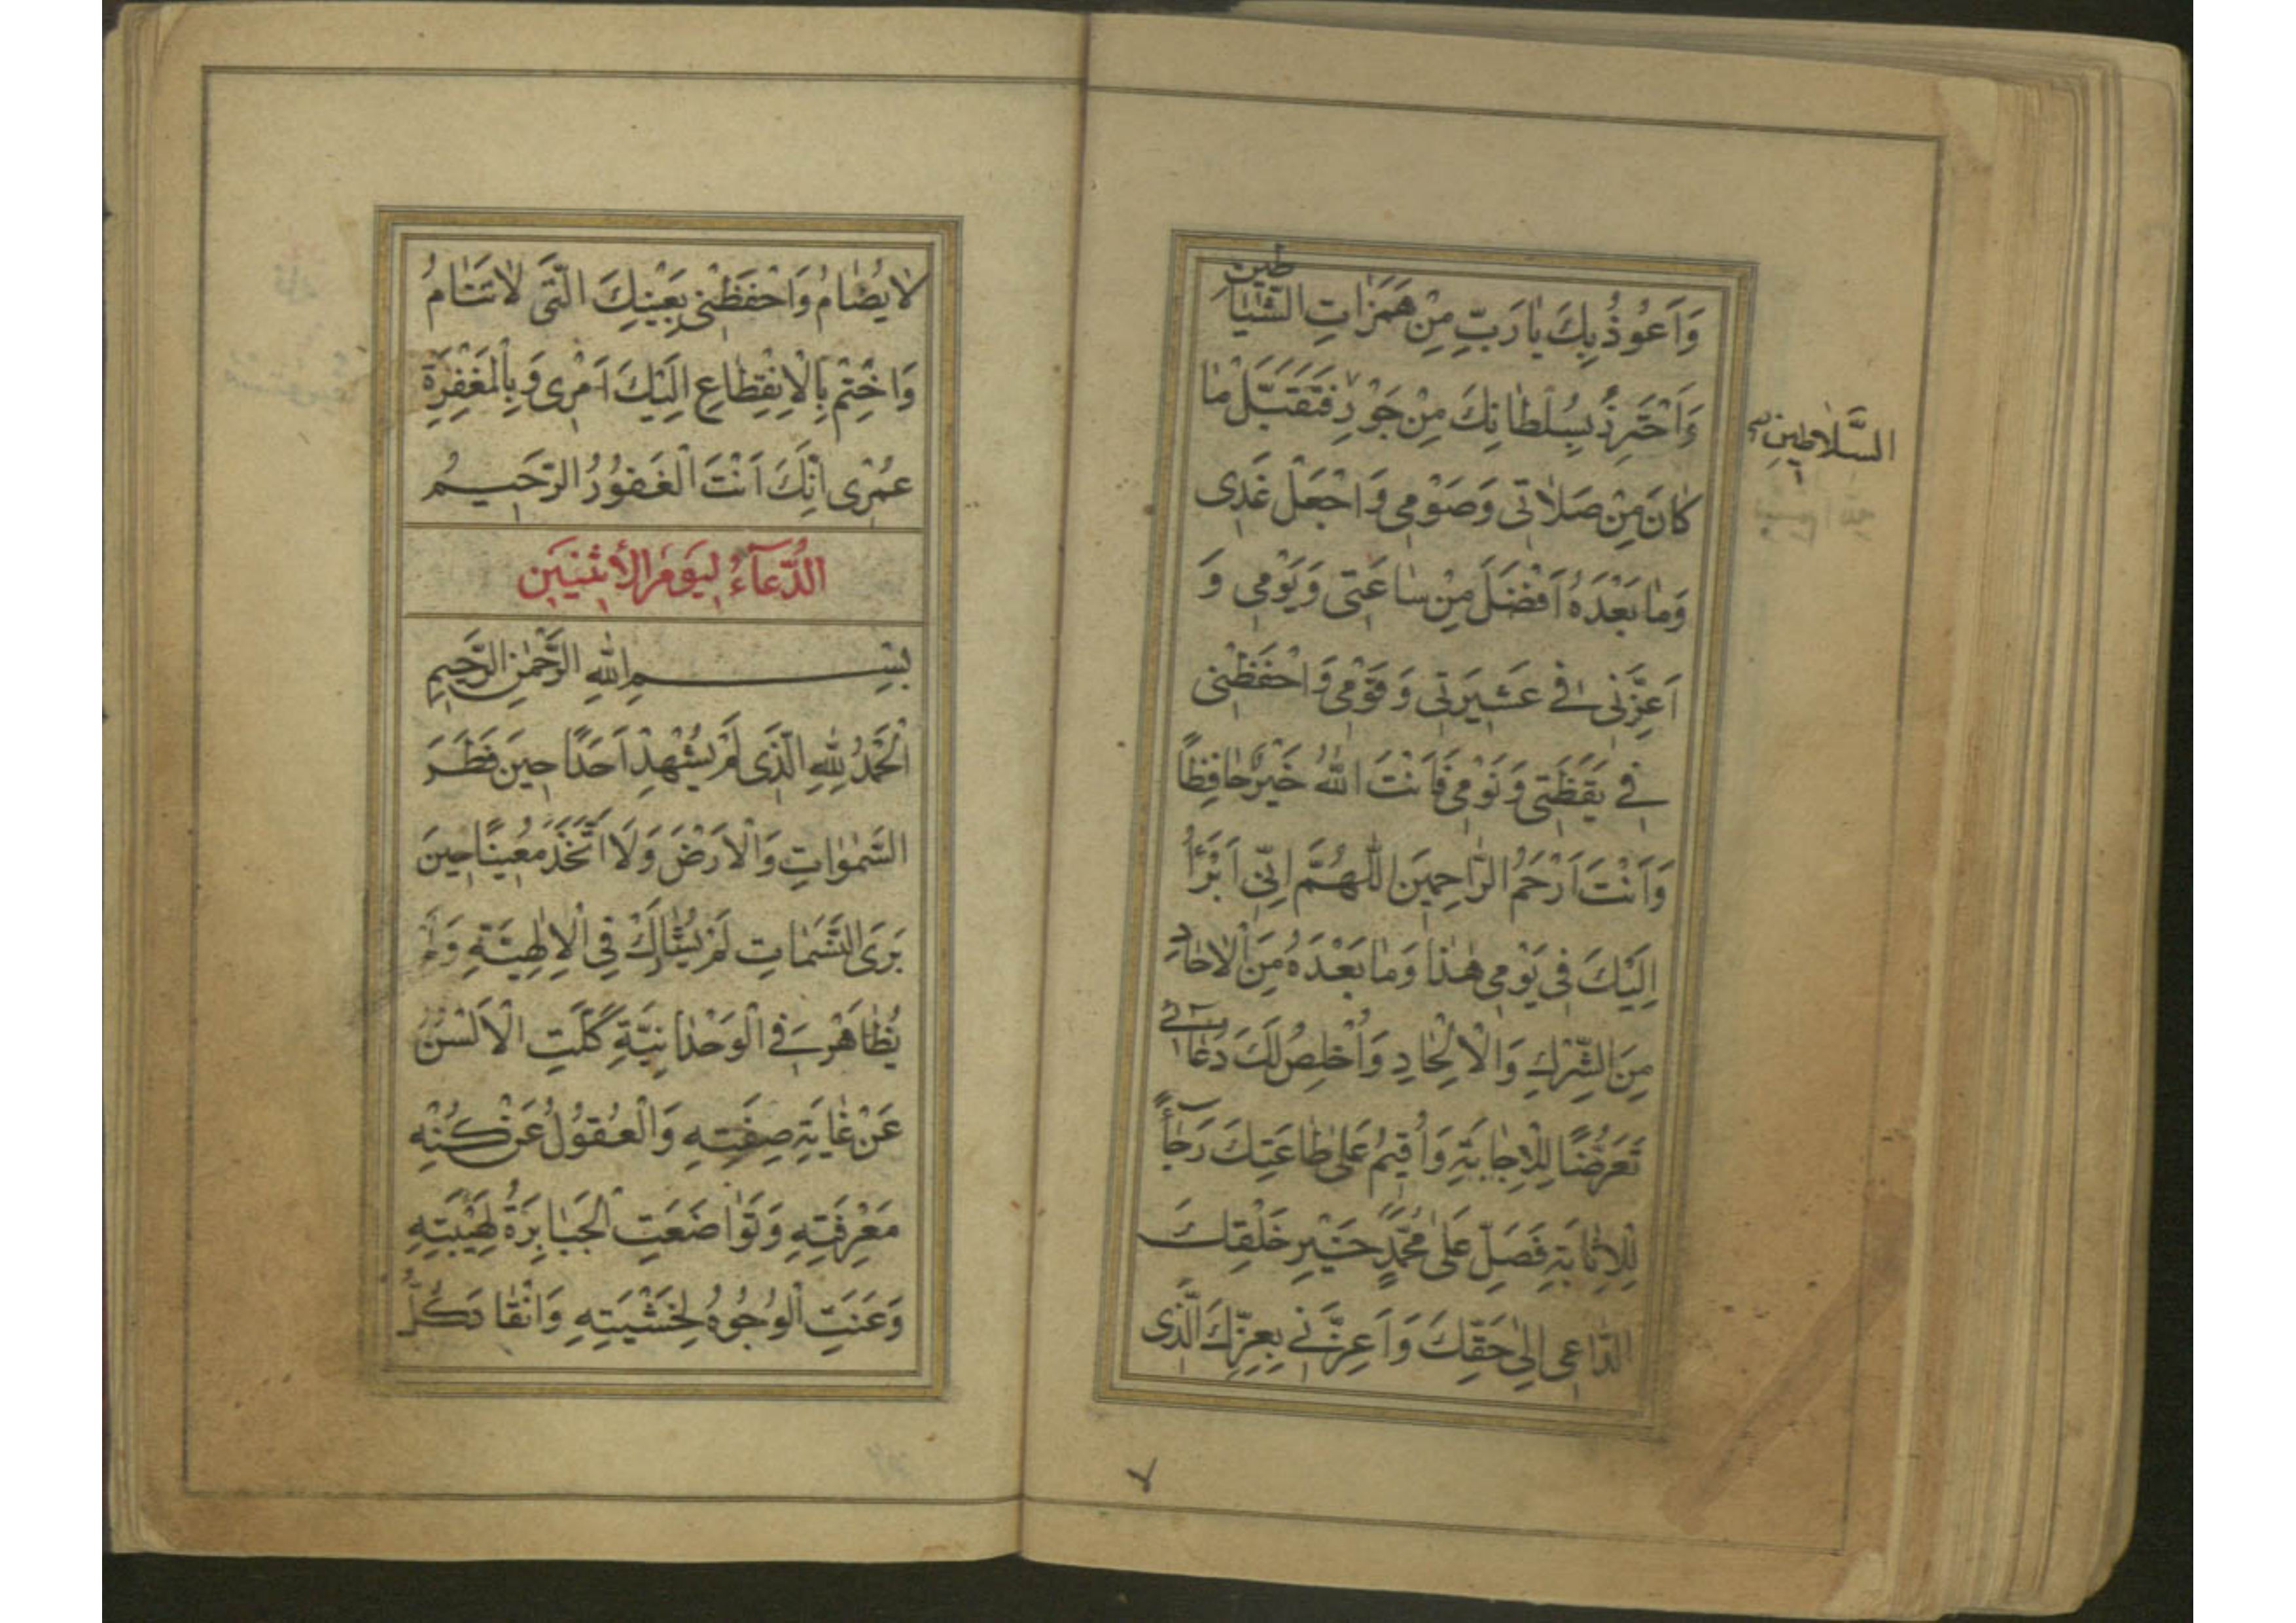 وَاَعُوذُ بِكَ يٰا رَبِّ مِنْ هَمَزٰاتِ الشَّيٰاطينِ
وَاَحْتَرِزُ بِسُلْطٰانِكَ مِنْ جَوْرِ فَتَقَبَّلْ مٰا
السَّلاٰطينِ
كٰانَ مِنْ صَلاٰتى وَصَوْمى وَاجْعَلْ غَدى
وَمٰا بَعْدَهُ اَفْضَلَ مِنْ سٰاعَتى وَيَوْمى وَ
اَعِزَّنى فى عَشيرَتى وَقَوْمى وَاحْفَظْنى
فى يَقَظَتى وَنَوْمى فَاَنْتَ اللهُ خَيْرٌ حٰافِظًا
وَاَنْتَ اَرْحَمُ الرّٰاحِمينَ اَللّٰهُمَّ اِنّى اَبْرَأُ
اِلَيْكَ فى يَوْمى هٰذٰا وَمٰا بَعْدَهُ مِنَ الْاٰحٰادِ
مِنَ الشِّرْكِ وَالْاِلْحٰادِ وَاُخْلِصُ لَكَ دُعٰآئى
تَعَرُّضًا لِلْاِجٰابَةِ وَاُقيمُ عَلىٰ طٰاعَتِكَ رَجٰآءً
لِلْاِثٰابَةِ فَصَلِّ عَلىٰ مُحَمَّدٍ خَيْرِ خَلْقِكَ
الدّٰاعى اِلىٰ حَقِّكَ وَاَعِزَّنى بِعِزِّكَ الَّذى
لاٰ يُضٰامُ وَاحْفَظْنى بِعَيْنِكَ الَّتى لاٰ تَنٰامُ
وَاخْتِمْ بِالْاِنْقِطٰاعِ اِلَيْكَ اَمْرى وَبِالْمَغْفِرَةِ
عُمْرى اِنَّكَ اَنْتَ الْغَفُورُ الرَّحيمُ
الدُّعآءُ لِيَوْمِ الْأِثْنَيْنِ
بِسْمِ اللهِ الرَّحْمٰنِ الرَّحيمِ
اَلْحَمْدُ لِلّٰهِ الَّذى لَمْ يُشْهِدْ اَحَدًا حينَ فَطَرَ
السَّمٰوٰاتِ وَالْاَرْضَ وَلاَ اتَّخَذَ مُعينًا حينَ
بَرَىَ النَّسَمٰاتِ لَمْ يُشٰارَكْ فِى الْاِلٰهِيَّةِ وَلَمْ
يُظٰاهَرْ فِى الْوَحْدٰانِيَّةِ كَلَّتِ الْاَلْسُنُ
عَنْ غٰايَةِ صِفَتِهِ وَالْعُقُولُ عَنْ كُنْهِ
مَعْرِفَتِهِ وَتَوٰاضَعَتِ الْجَبٰابِرَةُ لِهَيْبَتِهِ
وَعَنَتِ الْوُجُوهُ لِخَشْيَتِهِ وَانْقٰادَ كُلُّ